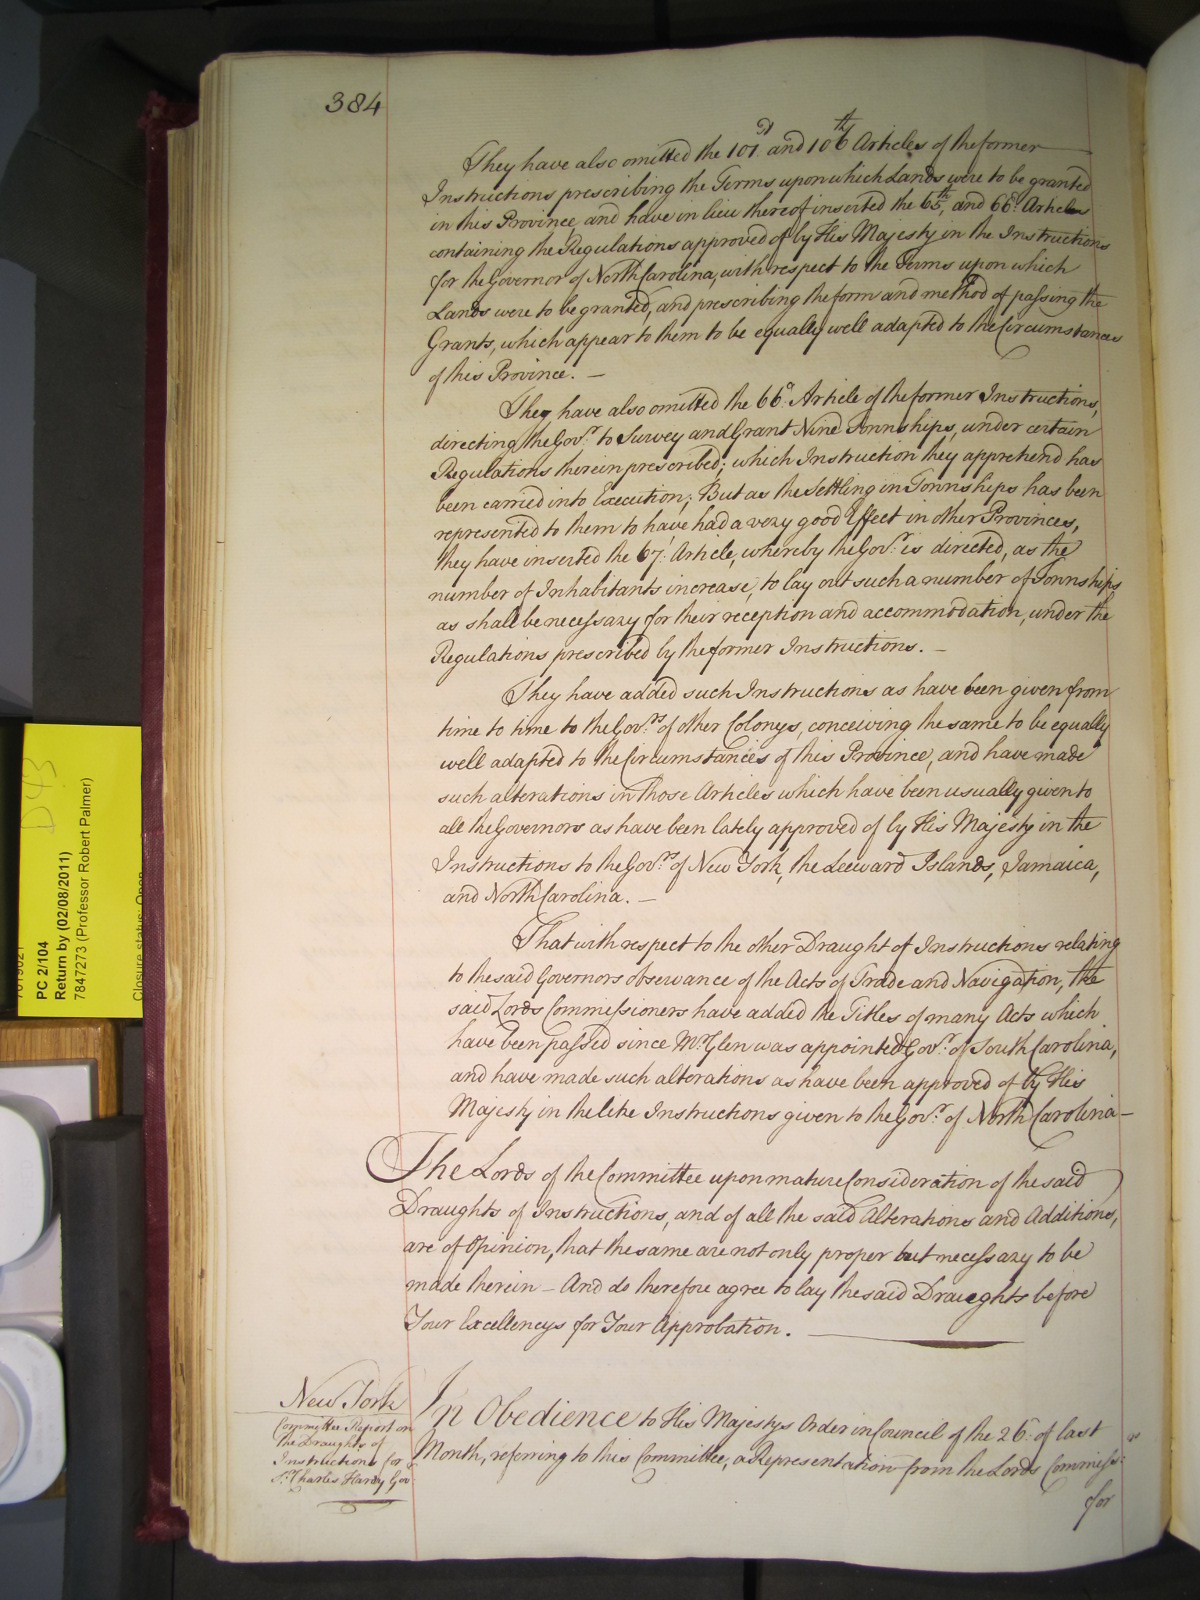 384
They have also omitted the 101st and 106th Articles of the former
Instructions prescribing the Terms upon which Lands were to be granted
in this Province, and have in lieu thereof inserted the 65th, and 66th Articles
containing the Regulations approved of by His Majesty in the Instructions
for the Governor of North Carolina, with respect to the Terms upon which
Lands were to be granted, and prescribing the form and method of passing the
Grants, which appear to them to be equally well adapted to the Circumstances
of this Province. —
They have also omitted the 66th Article of the former Instructions,
directing the Govr. to Survey and Grant Nine Townships, under certain
Regulations therein prescribed; which Instruction they apprehend has
been carried into Execution; But as the Settling in Townships has been
represented to them to have had a very good Effect in other Provinces,
they have inserted the 67. Article, whereby the Govr. is directed, as the
number of Inhabitants increase, to lay out such a number of Townships
as shall be necessary for their reception and accommodation, under the
Regulations prescribed by the former Instructions. —
They have added such Instructions as have been given from
time to time to the Govrs. of other Colonys, conceiving the same to be equally
well adapted to the Circumstances of this Province, and have made
such alterations in those Articles which have been usually given to
all the Governors as have been lately approved of by His Majesty in the
Instructions to the Govrs. of New York, the Leeward Islands, Jamaica,
and North Carolina. —
That with respect to the other Draught of Instructions relating
to the said Governors observance of the Acts of Trade and Navigation, the
said Lords Commissioners have added the Titles of many Acts which
have been passed since Mr. Glen was appointed Govr. of South Carolina,
and have made such alterations as have been approved of by His
Majesty in the like Instructions given to the Govr. of North Carolina —
The Lords of the Committee upon mature Consideration of the said
Draughts of Instructions, and of all the said Alterations and Additions,
are of Opinion, that the same are not only proper but necessary to be
made therein — And do therefore agree to lay the said Draughts before
Your Excellencys for Your Approbation.
New York
Committee Report on
the Draughts of
Instructions for
Sr. Charles Hardy Govr
In Obedience to His Majestys Order in Council of the 26th of last
Month, referring to this Committee, a Representation from the Lords Commissrs
for
D43
PC 2/104
Return by (02/08/2011)
7847273 (Professor Robert Palmer)
Closure status: Open